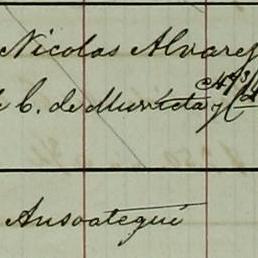 Nicolas Alvarez
C. de Murrieta y
Ansoategui